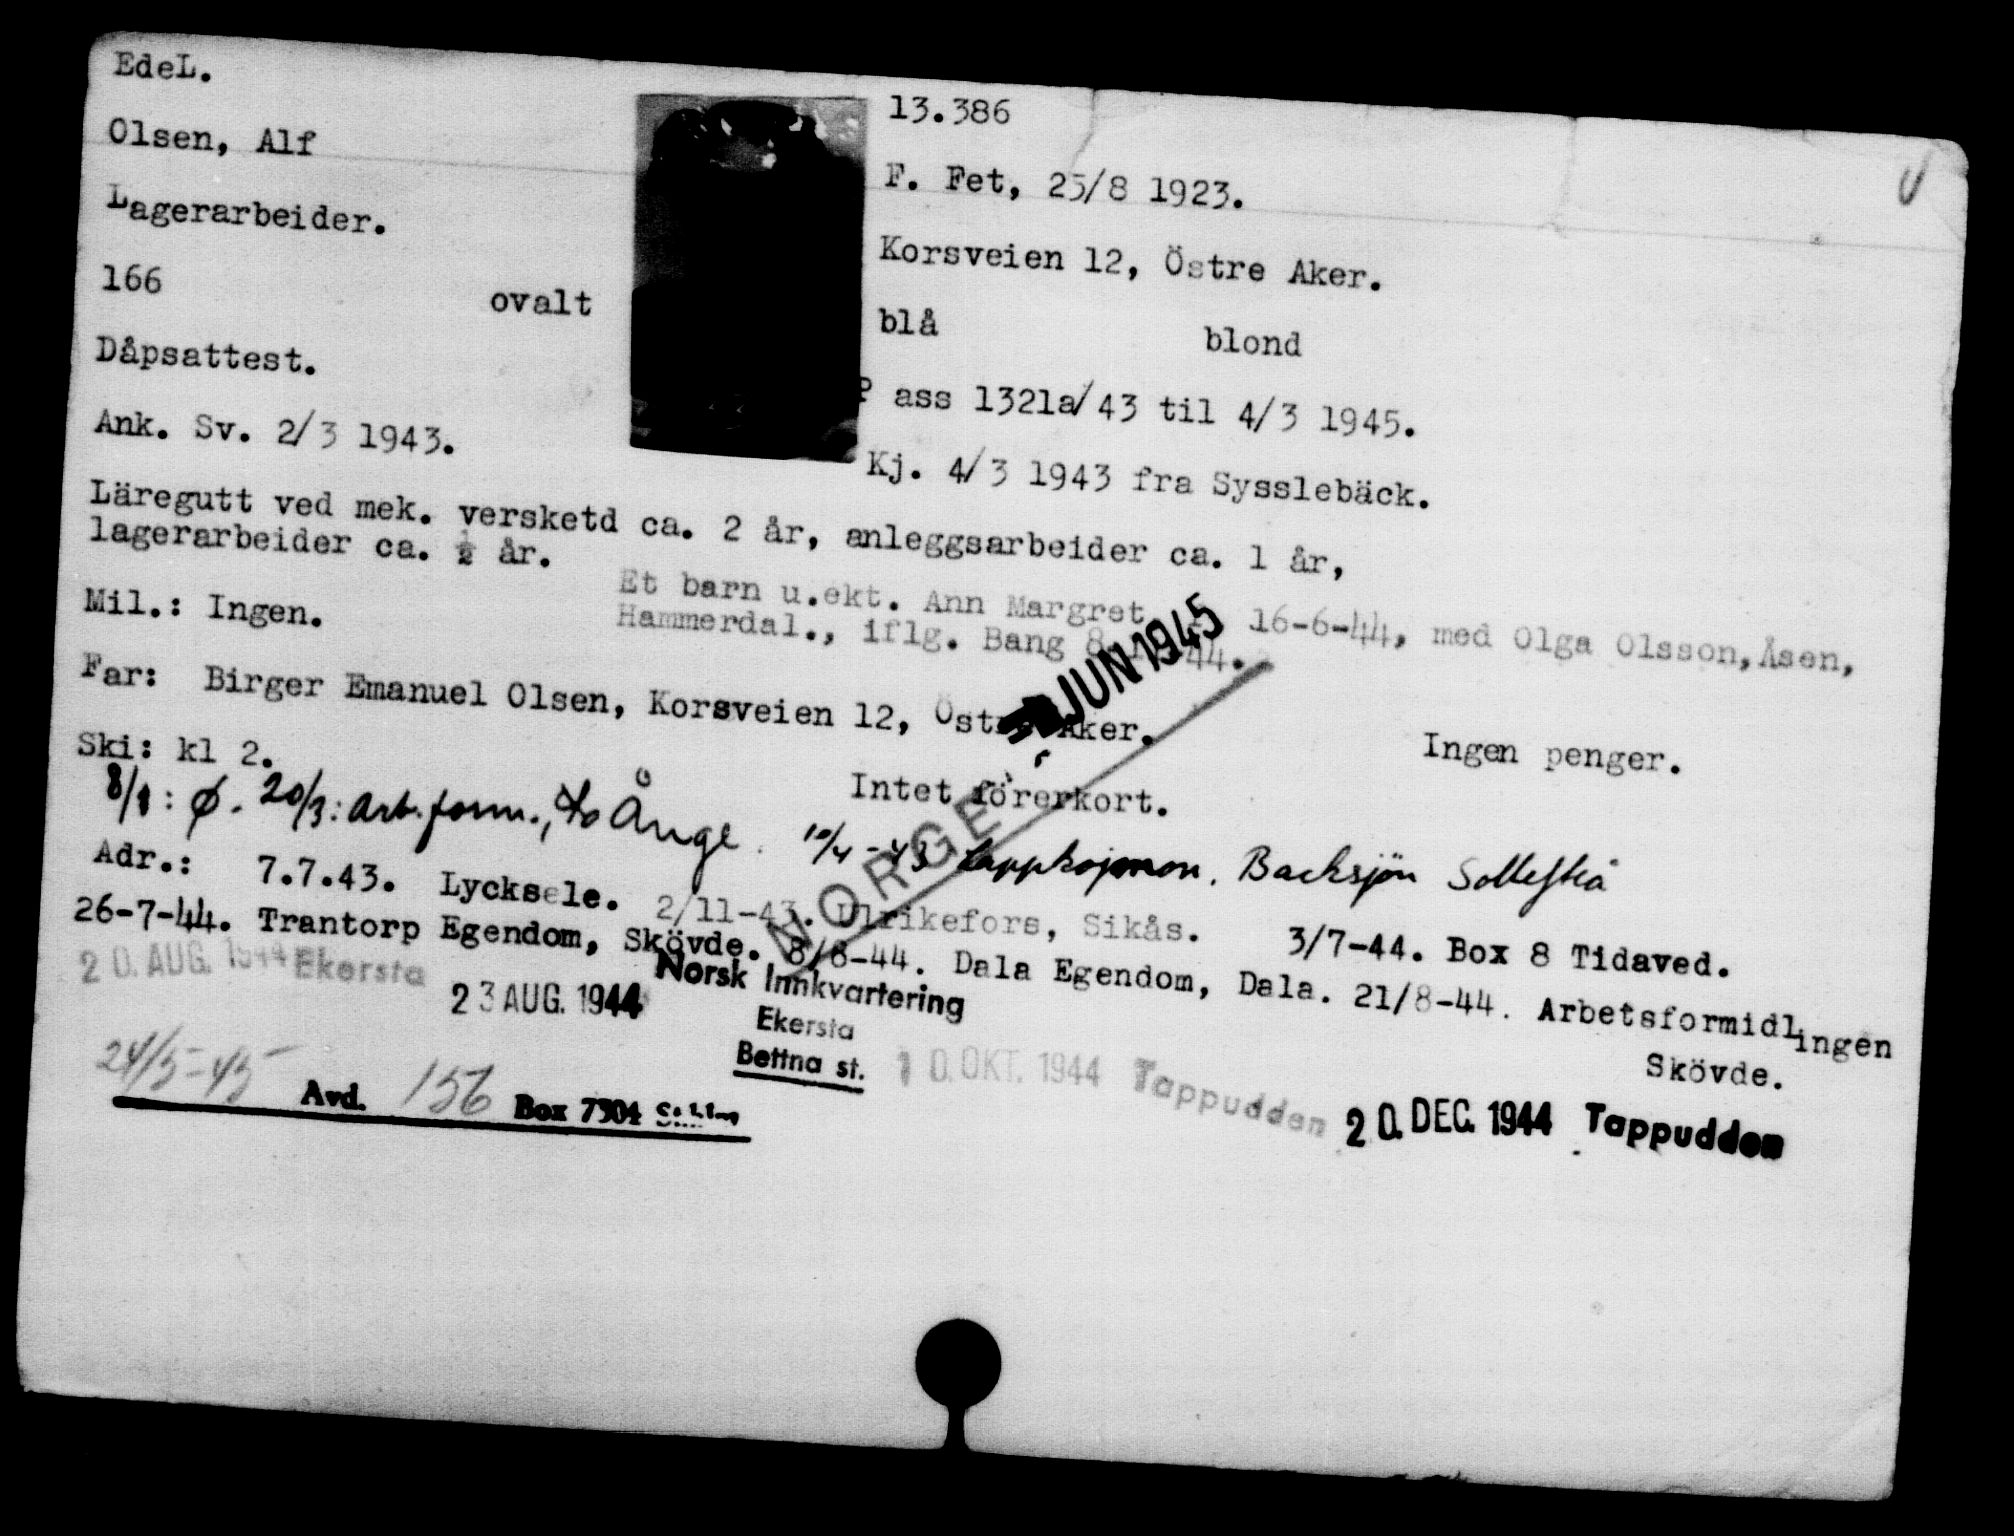 EdeL.
13.386
Olsen, Alf
F. Fet, 25/8 1923.
Lagerarbeider.
Korsveien 12, Östre Aker.
166 ovalt
blå blond
Dåpsattest.
P ass 1321a/43 til 4/3 1945.
Ank. Sv. 2/3 1943.
Kj. 4/3 1943 fra Sysslebäck.
Läregutt ved mek. versketd ca. 2 år, anleggsarbeider ca. 1 år,
lagerarbeider ca. ½ år.
Et barn u.ekt. Ann Margret 16-6-44, med Olga Olsson, Åsen,
Mil.: Ingen.
Hammerdal., iflg. Bang 44.
JUN 1945
Far: Birger Emanuel Olsen, Korsveien 12, Östre Aker.
Ingen penger.
Ski: kl 2.
Intet förerkort.
NORGE
20/3: Arb.form., Ånge. 10/4-43 Backsjön Sollefteå
Adr.: 7.7.43. Lycksele. 2/11-43. Ulrikefors, Sikås. 3/7-44. Box 8 Tidaved.
26-7-44. Trantorp Egendom, Skövde. 8/8-44. Dala Egendom, Dala. 21/8-44. Arbetsformidlingen
Skövde.
20. AUG. 1944 Ekersta
23 AUG. 1944
Norsk Innkvartering
Ekersta
Bettna st.
10. OKT. 1944 Tappudden
20. DEC. 1944 Tappudden
24/5-45
Avd. 156 Box 7304